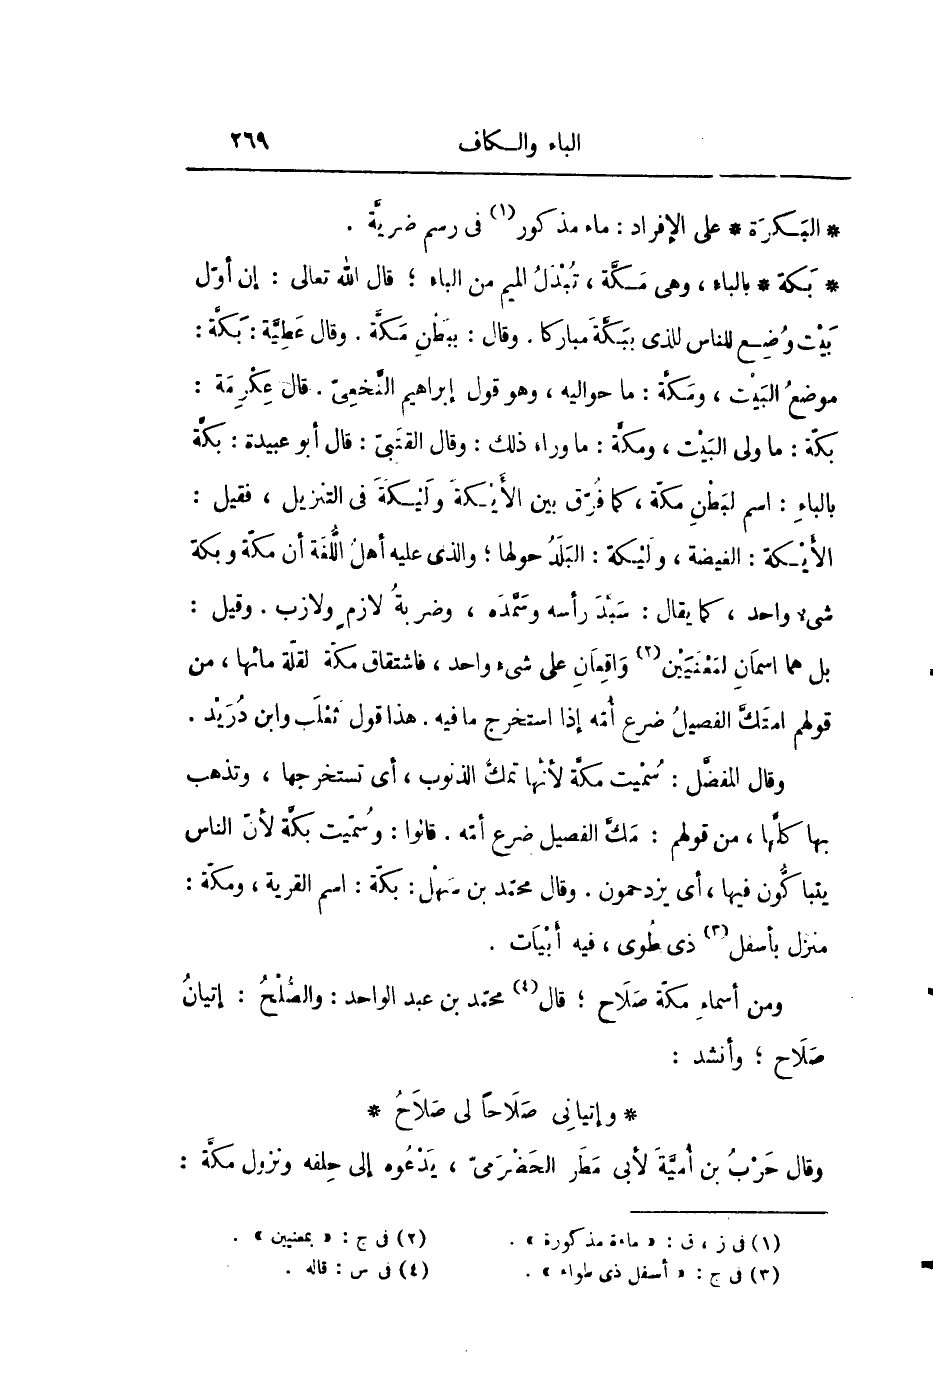 الباء والكاف ٢٦٩
* البَكرَة * على الإفراد : ماء مذكور(١) فى رسم ضريَّة .
* بَكة * بالباء ، وهى مَكَّة ، تُبْدَلُ الميم من الباء ؛ قال الله تعالى : إن أوّل
بَيْت وُضِع للناس للذى ببَكَّةَ مباركا . وقال : ببَطْنِ مَكَّة . وقال عَطِيَّة : بَكَّة :
موضعُ البَيْت ، ومَكَّة : ما حواليه ، وهو قول إبراهيم النَّخعِىّ . قال عِكْرِمَة :
بكّة : ما ولى البَيْت ، ومكَّة : ما وراء ذلك : وقال القتَبىّ : قال أبو عبيدة : بكَّة
بالباءِ : اسم لبَطْنِ مكّة ، كما فُرّق بين الأَيْكةَ ولَيْكَةَ فى التنزيل ، فقيل :
الأَيْكة : الغيضة ، ولَيْكة : البَلَدُ حولها ؛ والذى عليه أهلُ اللُّغَة أن مكّة وبكة
شىء واحد ، كما يقال : سَبَّدَ رأسه وسَمَّدَه ، وضربةُ لازمٍ ولازب . وقيل :
بل هما اسمَانِ لمَعْنَيَيْن(٢) وَاقِعَانِ على شىء واحد ، فاشتقاق مكّة لقلّة مائها ، من
قولهم امتَكَّ الفصيلُ ضرع أُمّه إذا استخرج ما فيه . هذا قول ثعْلَب وابن دُرَيْد .
وقال المفضَّل : سُمّيت مكَّة لأنَّها تمكُّ الذنوب ، أى تستخرجها ، وتذهب
بها كلَّها ، من قولهم : مَكَّ الفصيل ضرع أمّه . قالوا : وسُمّيت بكَّة لأنّ الناس
يتباكُّون فيها ، أى يزدحمون . وقال محمّد بن سَهْل : بكّة : اسم القرية ، ومكّة :
منزل بأسفل(٣) ذى طُوى ، فيه أَبْيَات .
ومن أسماءِ مكّة صَلَاح ؛ قال(٤) محمّد بن عبد الواحد : والصُّلْحُ : إتيانُ
صَلَاح ؛ وأنشد :
* وإتيانِى صَلَاحًا لى صَلاَحُ *
وقال حَرْبُ بن أُميَّةَ لأبى مَطَر الحَضْرَمىّ ، يَدْعُوه إلى حِلفه ونزول مكَّة :
(١) فى ز ، ق : « ماءة مذكورة » . (٢) فى ج : « بمعنيين » .
(٣) فى ج : « أسفل ذى طواء » . (٤) فى س : قاله .